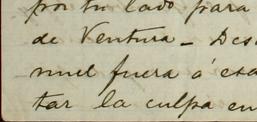 por tu lado para
de Ventura – Des
muel fuera á esa
tar la culpa en